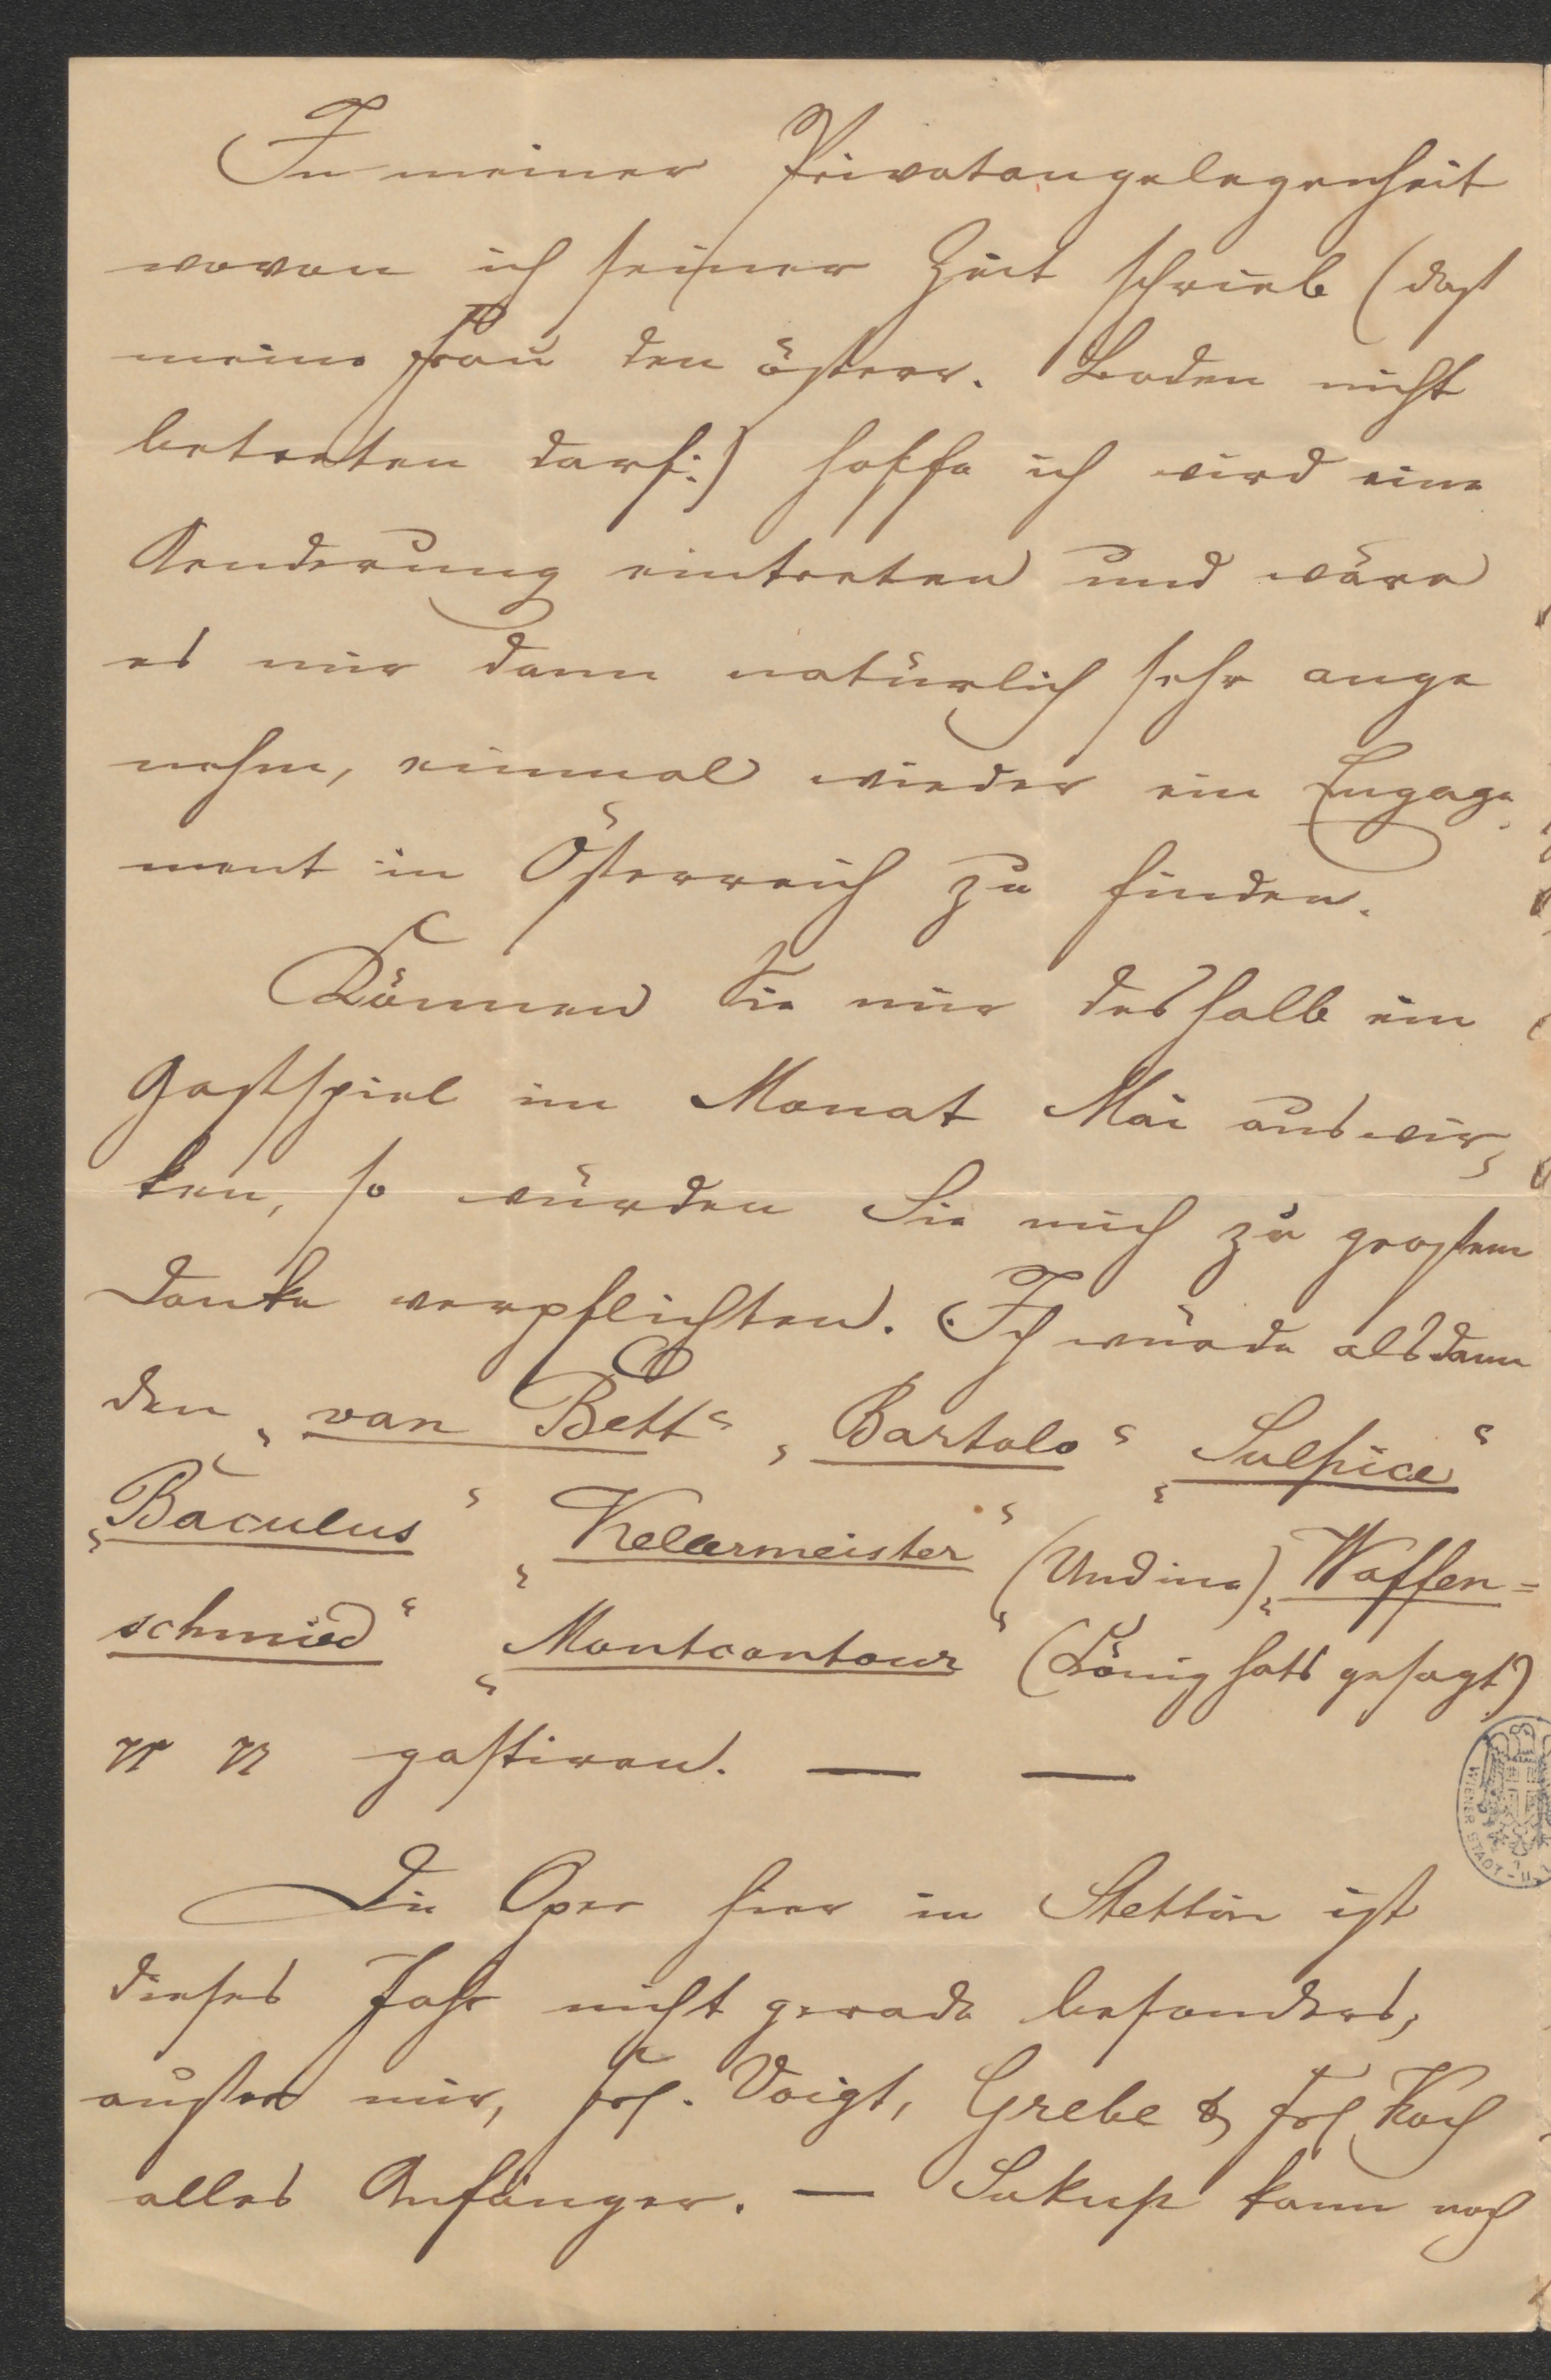 In meiner Privatangelegenheit
wovon ich seiner Zeit schrieb (daß
meine Frau den österr. Boden nicht
betreten darf:) hoffe ich wird eine
Aenderung eintreten und wäre
es mir dann natürlich sehr ange
nehm, einmal wieder ein Engage
ment in Österreich zu finden.
Können Sie mir deshalb ein
Gastspiel im Monat Mai auswir,
ken, so würden Sie mich zu großem
Danke verpflichten. Ich würde alsdann
den „van Bett“ „Bartolo“ „Sulpice“
„Baculus“ „Kellermeister“ (Undine) „Waffen=
schmied“ „Montcontour“ (König hats gesagt)
gastiren. — —
Die Oper hier in Stettin ist
dieses Jahr nicht gerade besonders,
außer mir, Frl. Voigt, Grebe & Frl Koch
alles Anfänger. — Sukup kann noch
WIENER STADT-U.